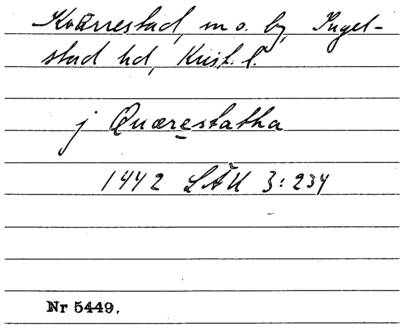 Kvärrestad, m o. by, Ingel-
stad hd, Krist. l.
j Quærestatha
1442 LÄU 3:234
Nr 5449.